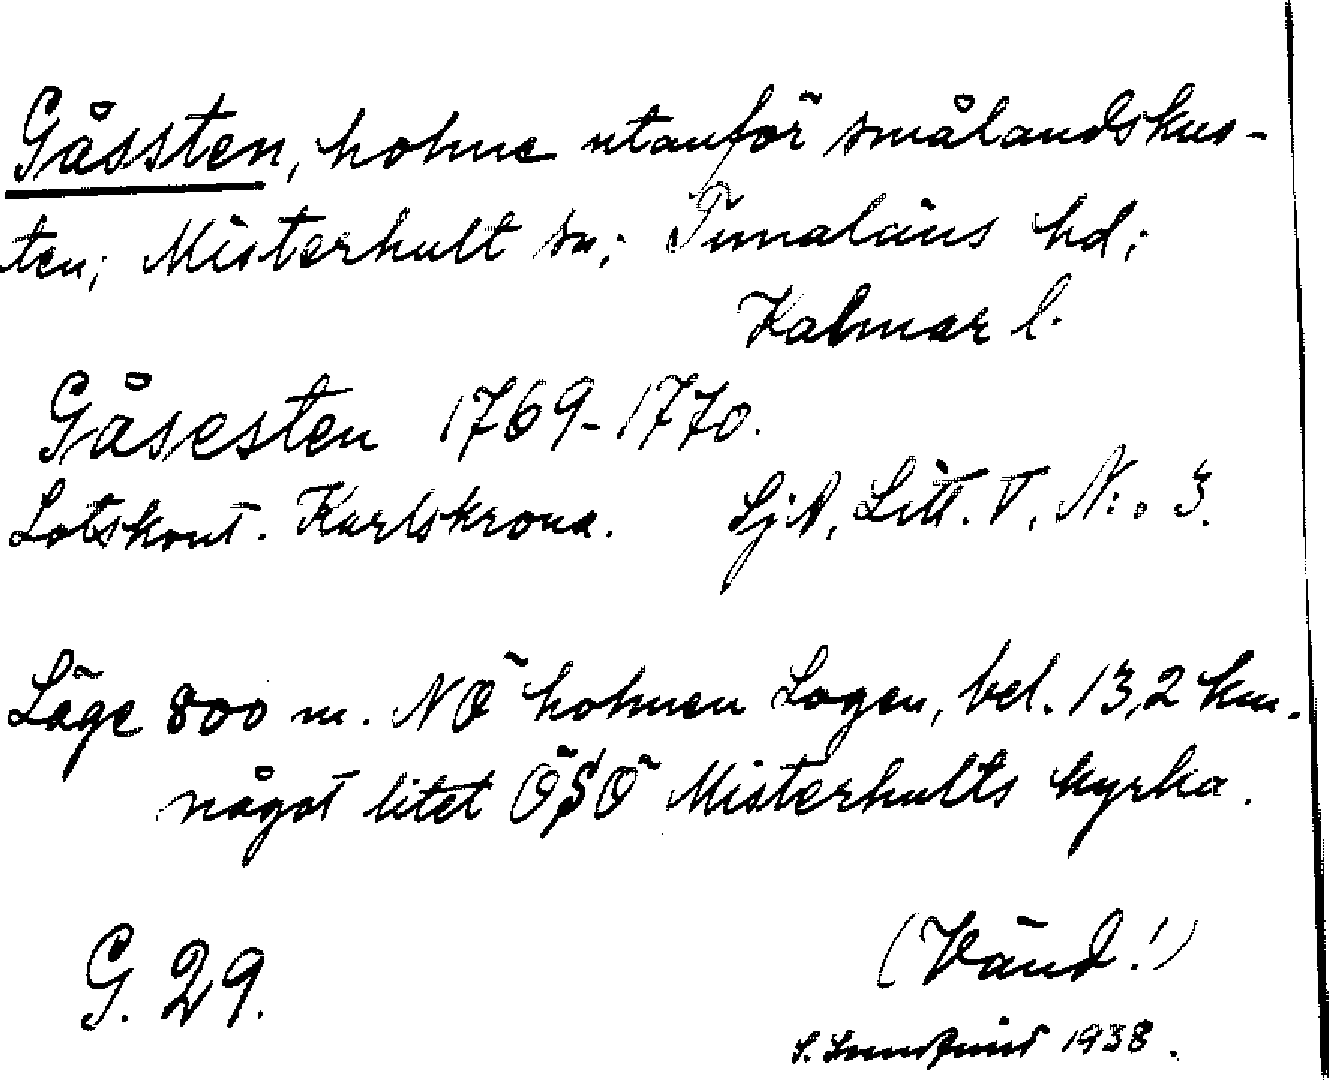 Gåssten, holme utanför smålandskus-
ten; Misterhult sn; Tunaläns hd;
Kalmar l.
Gåsesten 1769-1770.
Lotskont. Karlskrona. SjA, Litt. T, N:o 3.
Läge 800 m. NÖ holmen Logen, bel. 13,2 km.
något litet ÖSÖ Misterhults kyrka.
(Vänd!)
G. 29.
S. 1938.